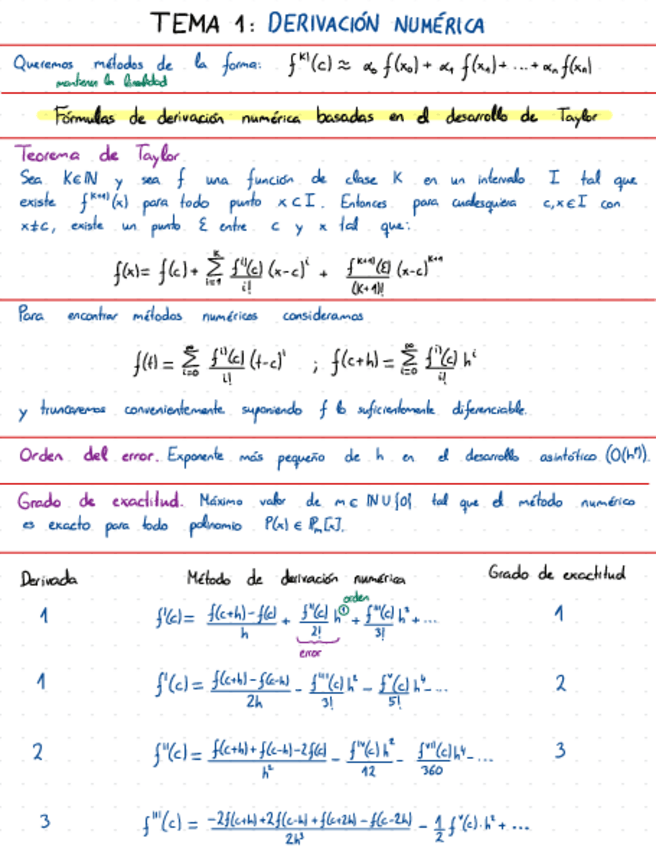 TEMA 1: DERIVACIÓN NUMÉRICA
Queremos métodos de la forma: f^{k)}(c) ≈ α₀ f(x₀) + α₁ f(x₁) + ... + αₙ f(xₙ)
mantienen la linealidad
Fórmulas de derivación numérica basadas en el desarrollo de Taylor
Teorema de Taylor
Sea K∈ℕ y sea f una función de clase K en un intervalo I tal que
existe f^{K+1)}(x) para todo punto x ⊂ I. Entonces para cualesquiera c,x∈I con
x≠c, existe un punto ξ entre c y x tal que:
f(x) = f(c) + Σ_{i=1}^{K} f^{i)}(c)/i! (x-c)^i + f^{K+1)}(ξ)/(K+1)! (x-c)^{K+1}
Para encontrar métodos numéricos consideramos
f(t) = Σ_{i=0}^{∞} f^{i)}(c)/i! (t-c)^i ; f(c+h) = Σ_{i=0}^{∞} f^{i)}(c)/i! h^i
y truncaremos convenientemente suponiendo f lo suficientemente diferenciable.
Orden del error. Exponente más pequeño de h en el desarrollo asintótico (O(hⁿ)).
Grado de exactitud. Máximo valor de m ∈ ℕ∪{0} tal que el método numérico
es exacto para todo polinomio P(x) ∈ ℙₘ[x].
Derivada Método de derivación numérica Grado de exactitud
orden
1 f'(c) = (f(c+h) - f(c))/h + f''(c)/2! h^① + f'''(c)/3! h² + ... 1
error
1 f'(c) = (f(c+h) - f(c-h))/2h - f'''(c)/3! h² - f^{v}(c)/5! h⁴ - ... 2
2 f''(c) = (f(c+h) + f(c-h) - 2f(c))/h² - f^{iv}(c)h²/12 - f^{vi)}(c)h⁴/360 - ... 3
3 f'''(c) = (-2f(c+h) + 2f(c-h) + f(c+2h) - f(c-2h))/2h³ - 1/2 f^{v}(c)·h² + ...